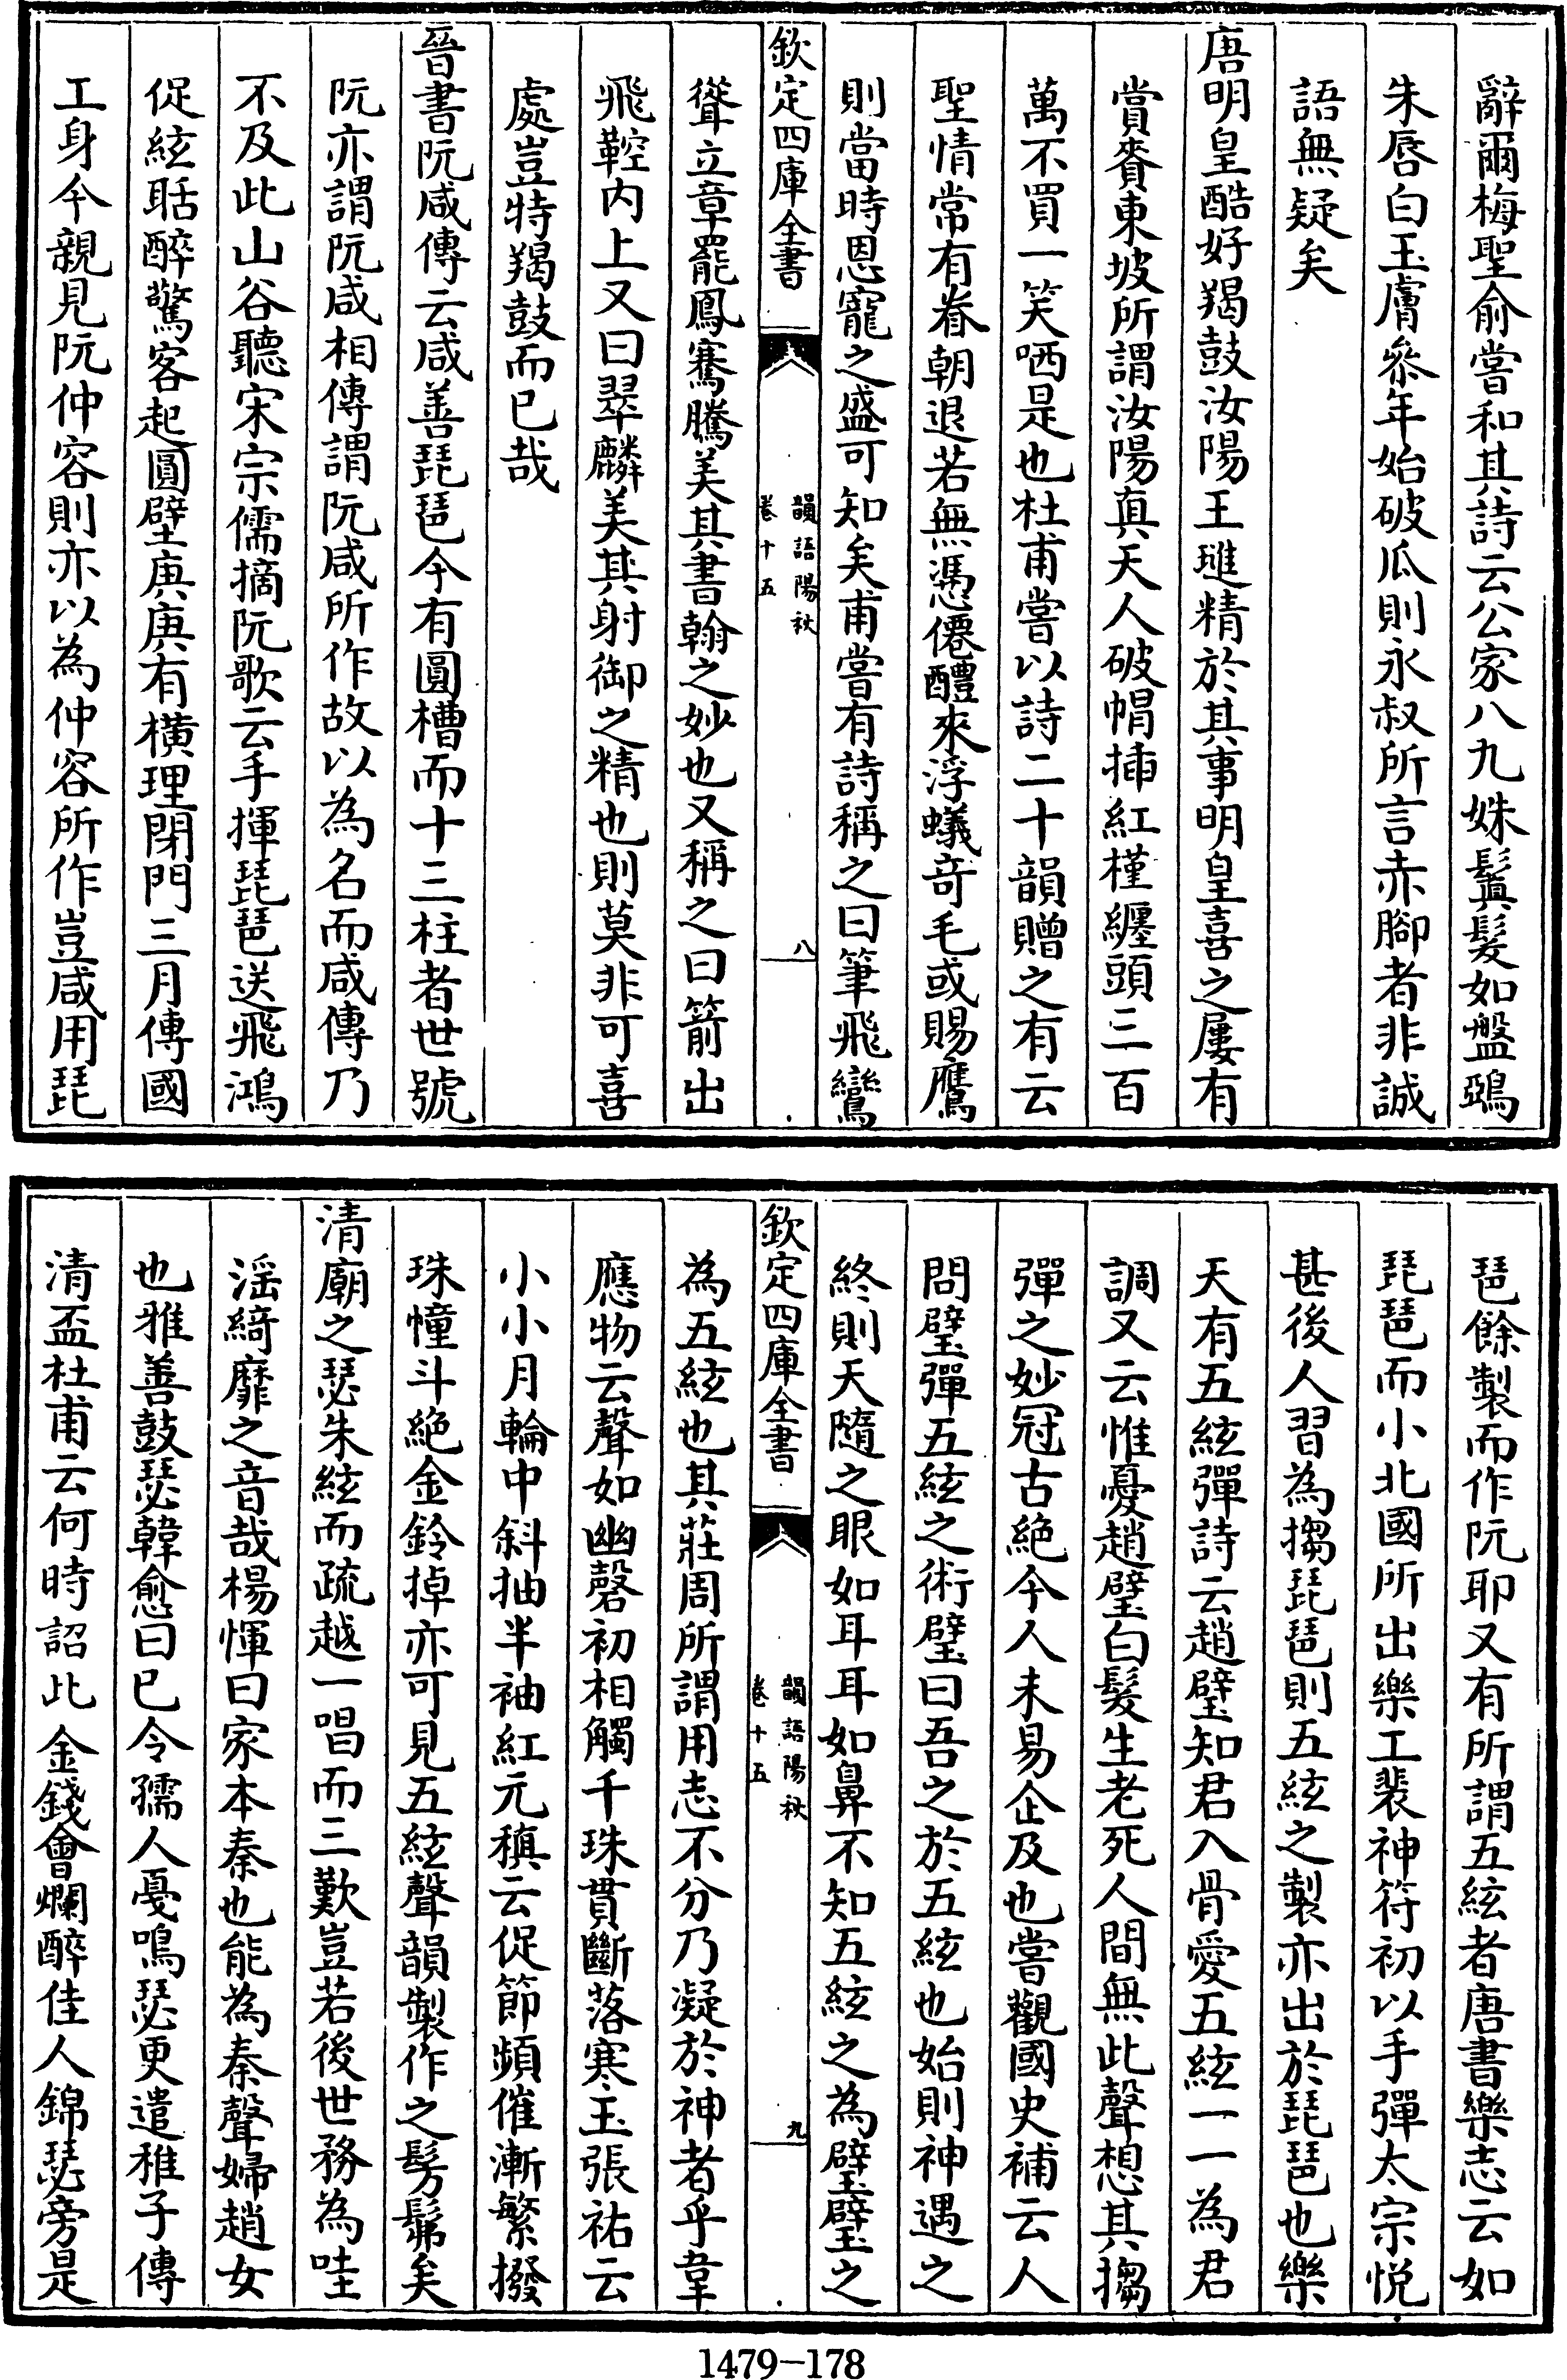 辭爾梅聖俞嘗和其詩云公家八九姝鬒髮如盤鵶
朱唇白玉膚參年始破瓜則永叔所言赤腳者非誠
語無疑矣
唐明皇酷好羯鼓汝陽王璡精於其事明皇喜之屢有
賞賚東坡所謂汝陽真天人破帽揷紅槿纏頭三百
萬不買一笑哂是也杜甫嘗以詩二十韻贈之有云
聖情常有眷朝退若無憑僊醴來浮蟻竒毛或賜鷹
則當時恩寵之盛可知矣甫嘗有詩稱之曰筆飛鸞
欽定四庫全書
韻語陽秋
卷十五
八
聳立章罷鳳騫騰美其書翰之妙也又稱之曰箭出
飛鞚内上又曰翠麟美其射御之精也則莫非可喜
處豈特羯鼓而已哉
晉書阮咸傳云咸善琵琶今有圓槽而十三柱者世號
阮亦謂阮咸相傳謂阮咸所作故以為名而咸傳乃
不及此山谷聽宋宗儒摘阮歌云手揮琵琶送飛鴻
促絃聒醉驚客起圓璧庚庚有橫理閉門三月傳國
工身今親見阮仲容則亦以為仲容所作豈咸用琵
琶餘製而作阮耶又有所謂五絃者唐書樂志云如
琵琶而小北國所出樂工裴神符初以手彈太宗悅
甚後人習為搊琵琶則五絃之製亦出於琵琶也樂
天有五絃彈詩云趙璧知君入骨愛五絃一一為君
調又云惟憂趙璧白髮生老死人間無此聲想其搊
彈之妙冠古絶今人未易企及也嘗觀國史補云人
問璧彈五絃之術璧曰吾之於五絃也始則神遇之
終則天隨之眼如耳耳如鼻不知五絃之為璧璧之
欽定四庫全書
韻語陽秋
卷十五
九
為五絃也其莊周所謂用志不分乃凝於神者乎韋
應物云聲如幽磬初相觸千珠貫斷落寒玉張祐云
小小月輪中斜抽半袖紅元稹云促節頻催漸繁撥
珠幢斗絶金鈴掉亦可見五絃聲韻製作之髣髴矣
清廟之瑟朱絃而疏越一唱而三歎豈若後世務為哇
淫綺靡之音哉楊惲曰家本秦也能為秦聲婦趙女
也雅善鼓瑟韓愈曰已令孺人戞鳴瑟更遣稚子傳
清盃杜甫云何時詔此金錢會爛醉佳人錦瑟旁是
1479-178